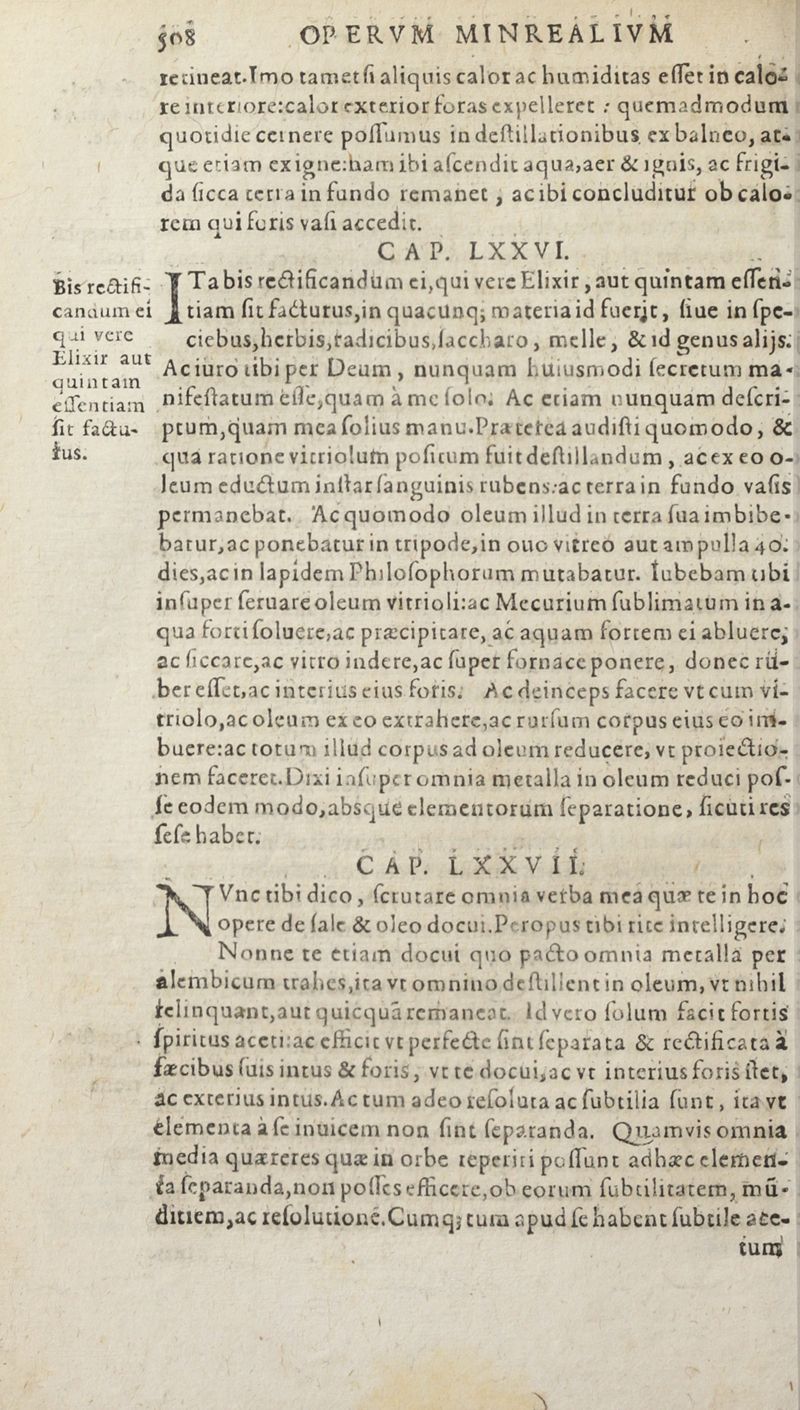 508 OPERVM MINREALIVM
retineat.Imo tametsi aliquis calor ac humiditas esset in calo-
re interiore:calor exterior foras expelleret : quemadmodum
quotidie cernere possumus in destillationibus ex balneo, at-
que etiam ex igne:nam ibi ascendit aqua,aer & ignis, ac frigi-
da sicca terra in fundo remanet , ac ibi concluditur ob calo-
rem qui foris vasi accedit.
CAP. LXXVI.
Bis rectifi-
candum ei
qui vere
Elixir aut
quintam
essentiam
sit factu-
rus.
ITa bis rectificandum ei,qui vere Elixir , aut quintam essen-
tiam sit facturus,in quacunq; materia id fuerit, siue in spe-
ciebus,herbis,radicibus,saccharo , melle, & id genus alijs.
Ac iuro tibi per Deum , nunquam huiusmodi secretum ma-
nifestatum esse,quam à me solo. Ac etiam nunquam descri-
ptum,quam mea solius manu.Præterea audisti quomodo, &
qua ratione vitriolum positum fuit destillandum , ac ex eo o-
leum eductum instar sanguinis rubens:ac terra in fundo vasis
permanebat. Ac quomodo oleum illud in terra sua imbibe-
batur,ac ponebatur in tripode,in ouo vitreo aut ampulla 40.
dies,ac in lapidem Philosophorum mutabatur. Iubebam tibi
insuper seruare oleum vitrioli:ac Mecurium sublimatum in a-
qua forti soluere,ac præcipitare, ac aquam fortem ei abluere,
ac siccare,ac vitro indere,ac super fornace ponere, donec ru-
ber esset,ac interius eius foris. Ac deinceps facere vt cum vi-
triolo,ac oleum ex eo extrahere,ac rursum corpus eius eo im-
buere:ac totum illud corpus ad oleum reducere, vt proiectio-
nem faceret.Dixi insuper omnia metalla in oleum reduci pos-
se eodem modo,absque elementorum separatione, sicuti res
sese habet.
CAP. LXXVII.
NVnc tibi dico , scrutare omnia verba mea quæ te in hoc
opere de sale & oleo docui.Per opus tibi rite intelligere.
Nonne te etiam docui quo pacto omnia metalla per
alembicum trahes,ita vt omnino destillent in oleum, vt nihil
relinquant,aut quicquã remaneat. Id vero solum facit fortis
spiritus aceti:ac efficit vt perfecte sint separata & rectificata à
fæcibus suis intus & foris, vt te docui,ac vt interius foris stet,
ac exterius intus.Ac tum adeo resoluta ac subtilia sunt, ita vt
elementa à se inuicem non sint separanda. Quamvis omnia
media quæreres quæ in orbe reperiri possunt ad hæc elemen-
ta separanda,non posses efficere,ob eorum subtilitatem, mũ-
ditiem,ac resolutioné.Cumq; tum apud se habent subtile ace-
tum